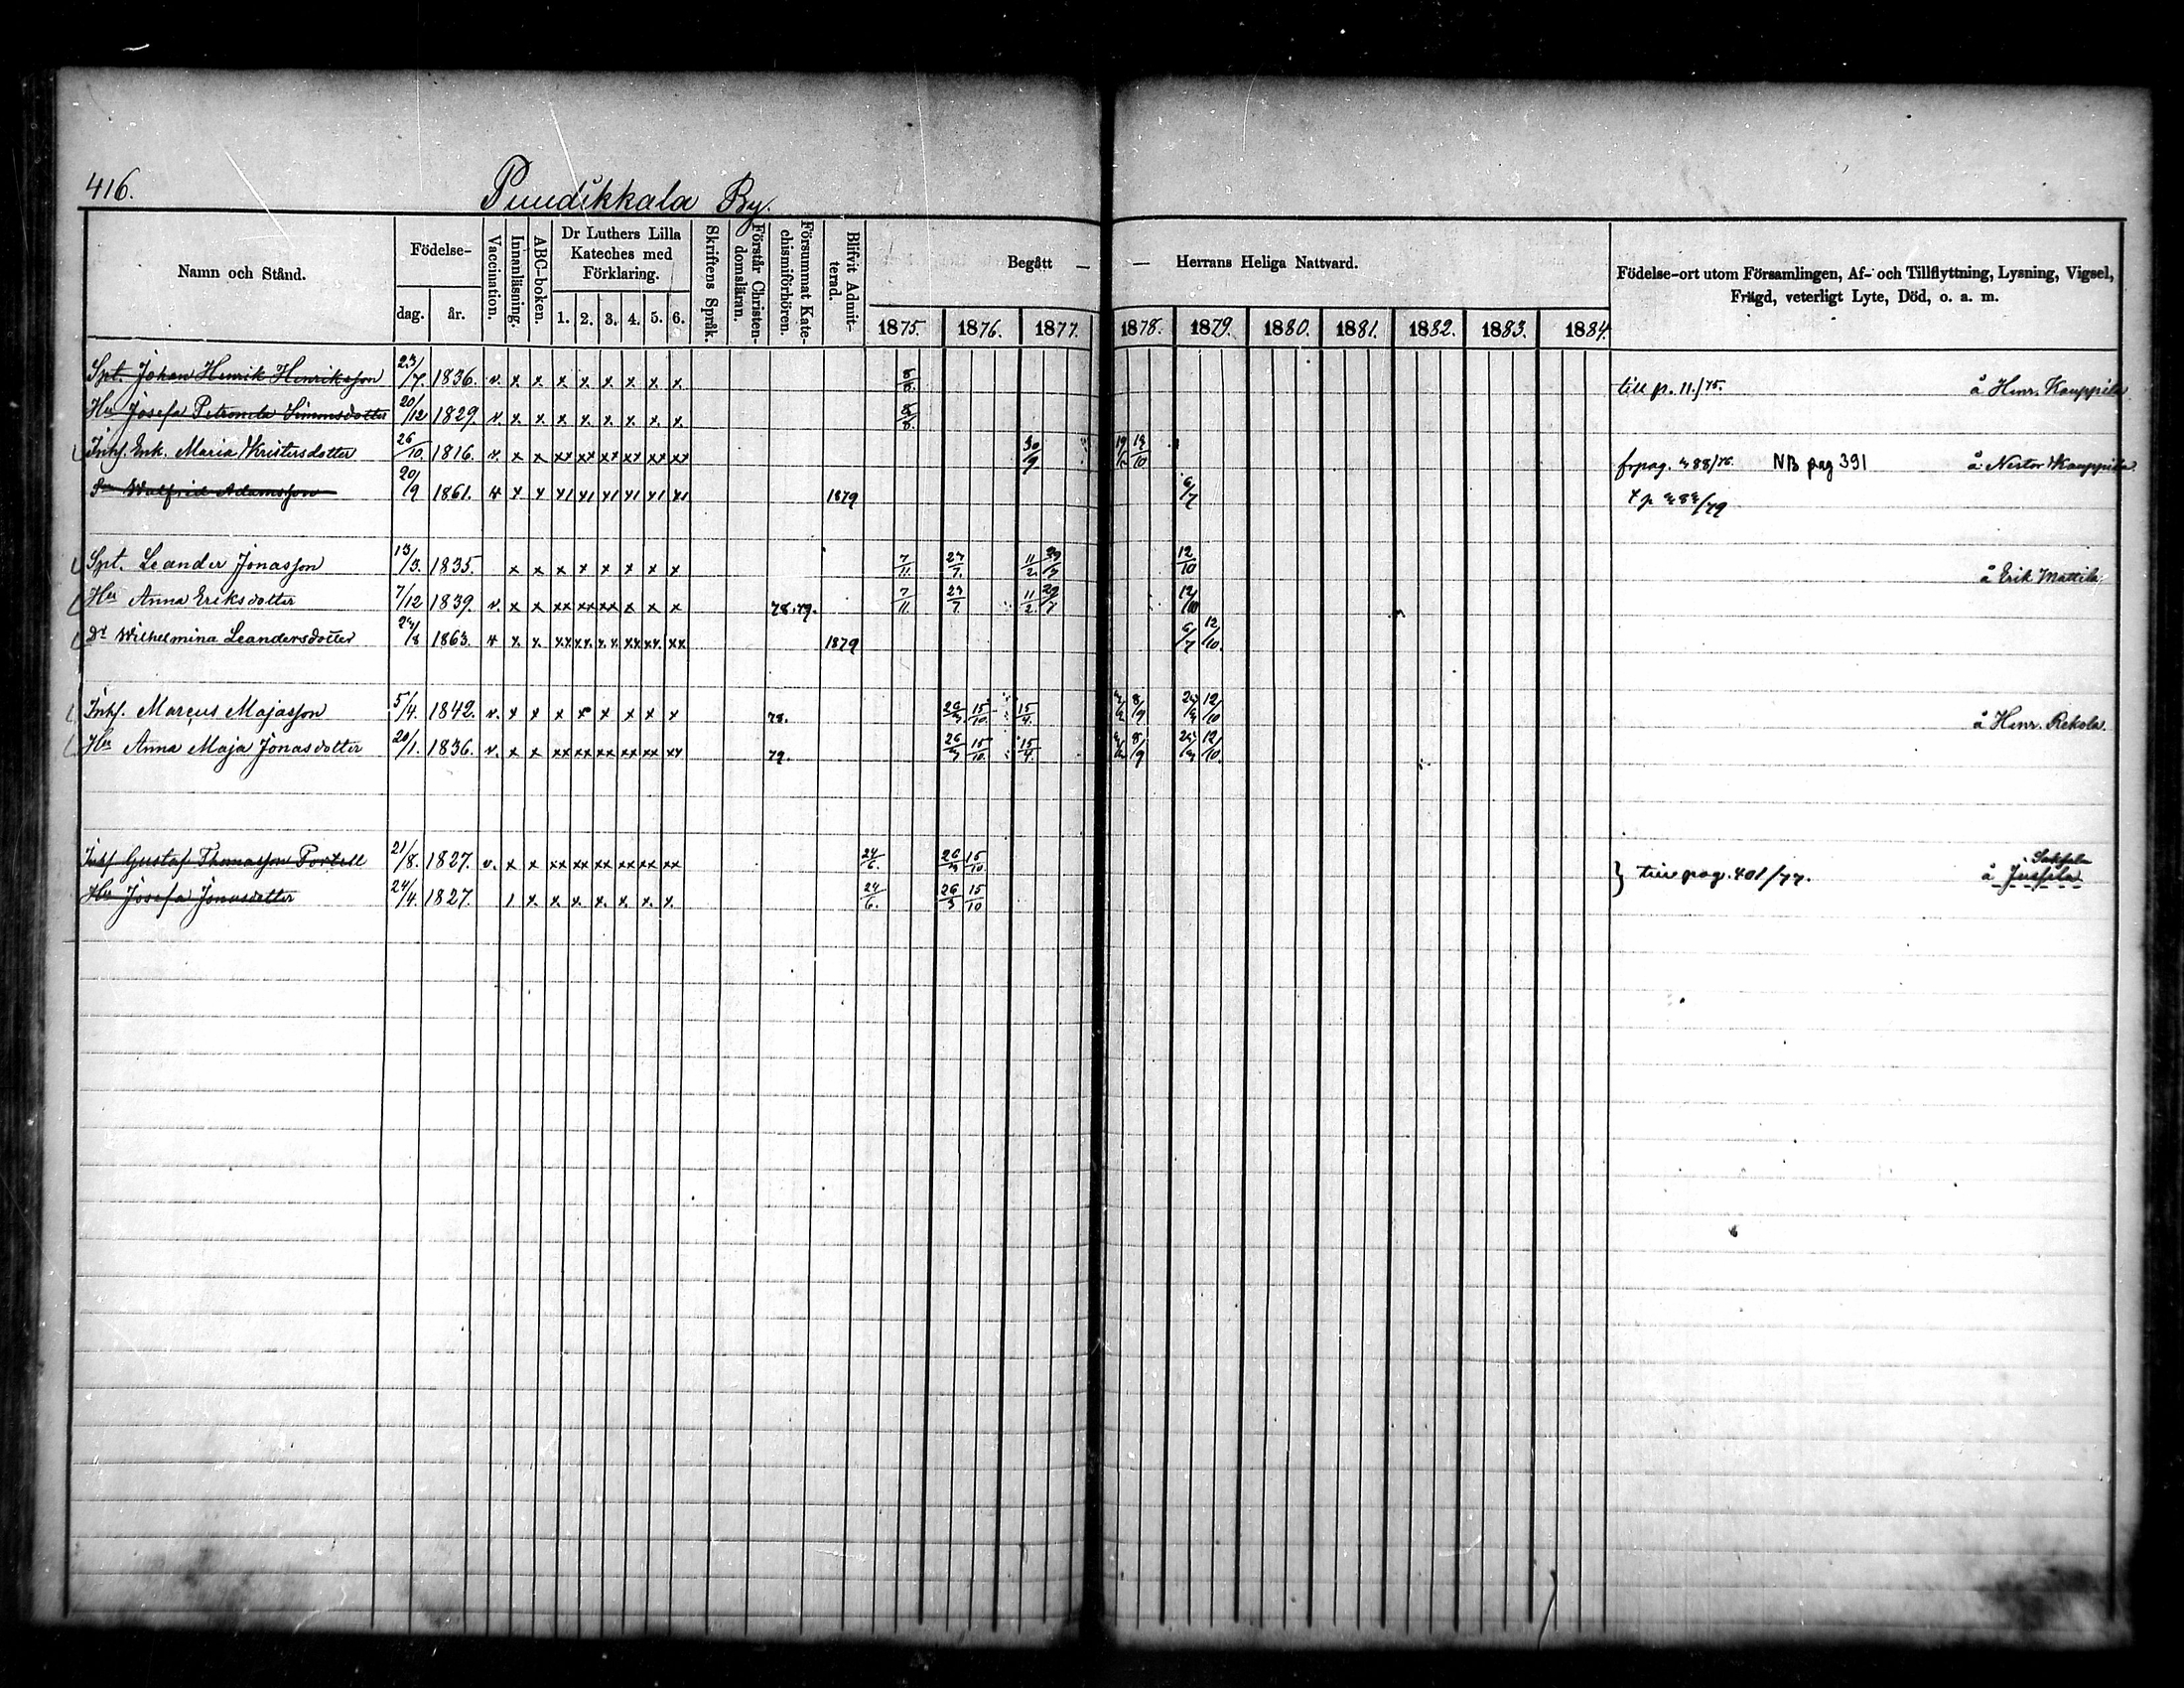 416.
Puudikkala By.
Namn och Stånd. Födelse- dag. år. Vaccination. Innanläsning. ABC-boken. Dr Luthers Lilla Kateches med Förklaring. 1. 2. 3. 4. 5. 6. Skriftens Språk. Förstår Christendomsläran. Försummat Katechismiförhören. Blifvit Admitterad. Begått — — Herrans Heliga Nattvard. Födelse-ort utom Församlingen, Af- och Tillflyttning, Lysning, Vigsel, Frägd, veterligt Lyte, Död, o. a. m.
1875. 1876. 1877. 1878. 1879. 1880. 1881. 1882. 1883. 1884.
Spt. Johan Henrik Henriksson 23/7 1836. v. x x x x x x x x 8/8. till p. 11./75. å Henr. Kauppila
Hu Josefa Petronela Simonsdotter 20/12 1829. v. x. x. x x. x x. x. x. 8/8.
Inhs. Enk. Maria Kristersdotter 26/10 1816. v. x x xx xx xx xx xx xx 30/9 13/10 frpag. NB pag 391 å Nestor Kauppila
Sn Walfrid Adamsson 20/9 1861. v x x x1 x1 x1 x1 x1 x1 1879 6/7
Spt. Leander Jonasson 13/3. 1835. x x x x x x x x 7/11. 27/7. 11/2. 29/7 12/10 å Erik Mattila
Hu Anna Eriksdotter 7/12 1839. v. x x xx xx xx x x x 78.79. 7/11 27/7 11/2 29/7 12/10
Dr Wilhelmina Leandersdotter 1863. v x. x. xx xx. xx xx xx. xx 1879 6/7 12/10.
Inhs. Marcus Majasson 5/4. 1842. v. x x x x x x x x 78. 26/3 15/10. 15/4. 8/9 12/10 å Henr. Rekola.
Hu Anna Maja Jonasdotter 20/1. 1836. v. x x xx xx xx xx xx xx 79. 26/3 15/10. 15/4. 8/9 12/10.
Inhs Gustaf Thomasson Portell 21/8. 1827. v. x x xx xx xx xx xx xx 24/6. 26/3 15/10. } till pag. 401/77. å Jussila
Hu Josefa Jonasdotter 24/4. 1827. 1 x. x. x. x. x. x. x. 24/6. 26/3 15/10